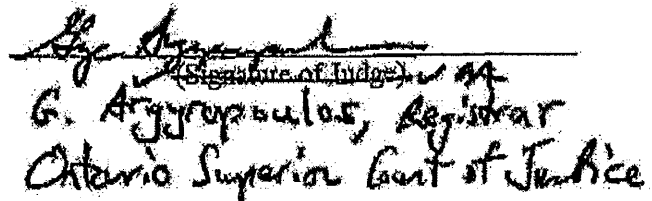 (Signature of Judge)
G. Argyropoulos, Registrar
Ontario Superior Court of Justice